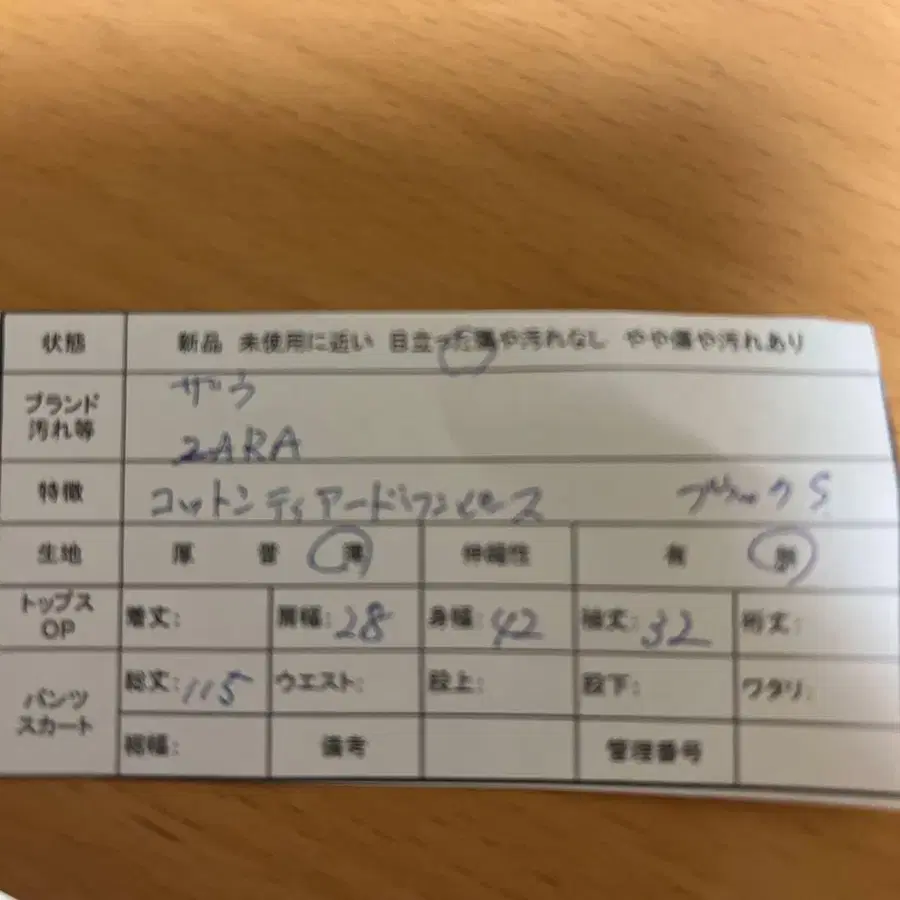 状態 新品 未使用に近い 目立った傷や汚れなし やや傷や汚れあり
ブランド 汚れ等 ザラ
ZARA
特徴 コットンティアードワンピース ブラックS
生地 厚 普 薄 伸縮性 有 無
トップス OP 着丈: 肩幅:28 身幅:42 袖丈:32 裄丈:
パンツ スカート 総丈:115 ウエスト: 股上: 股下: ワタリ:
裾幅: 備考 管理番号